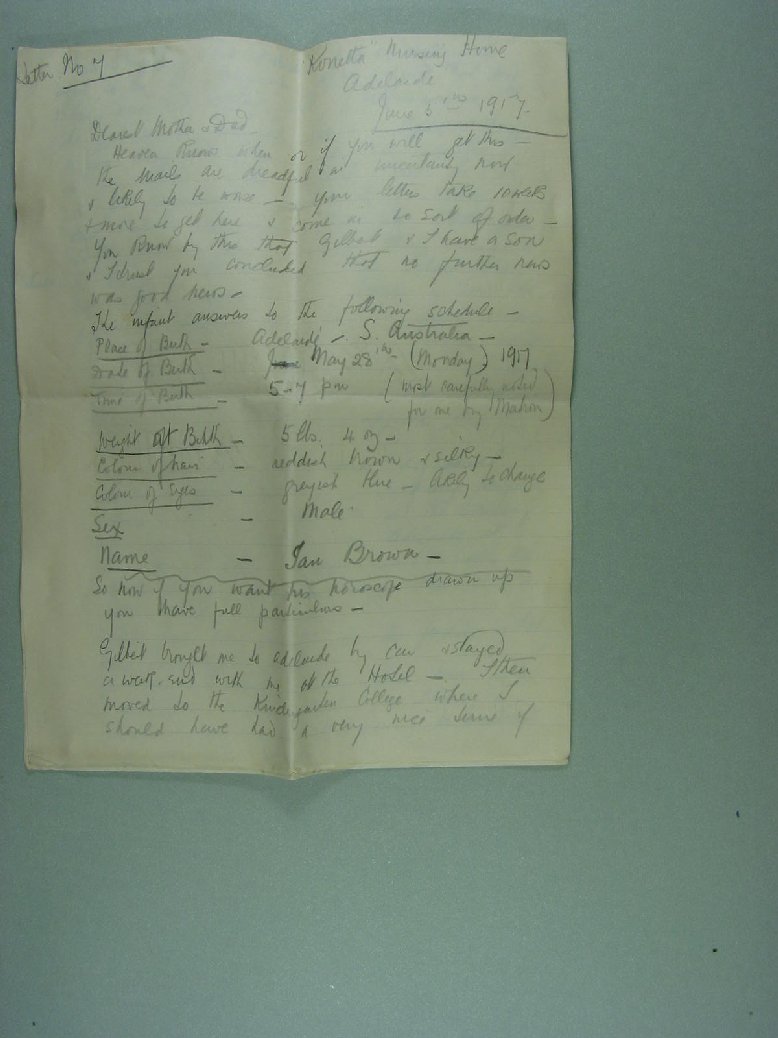 Letter No 7
"Konetta" Nursing Home
Adelaide
June 5th 1917.
Dearest Mother & Dad -
Heaven knows when or if you will get this -
the mails are dreadful & uncertain now
& likely to be worse - your letters take 10 weeks
& more to get here & come in no sort of order -
You know by this that Gilbert & I have a son
& I trust you concluded that no further news
was good news -
The infant answers to the following schedule -
Place of Birth - Adelaide - S. Australia -
Date of Birth - June May 28th - (Monday) 1917
Time of Birth - 5-7 pm (most carefully noted
for me by Matron)
Weight at Birth - 5 lbs. 4 oz -
Colour of hair - reddish brown & silky -
Colour of Eyes - greyish blue - likely to change
Sex - Male.
Name - Ian Brown -
So now if you want his horoscope drawn up
you have full particulars -
Gilbert brought me to adelaide by car & stayed
a week-end with me at the Hotel - I then
moved to the Kindergarten College where I
should have had a very nice time if